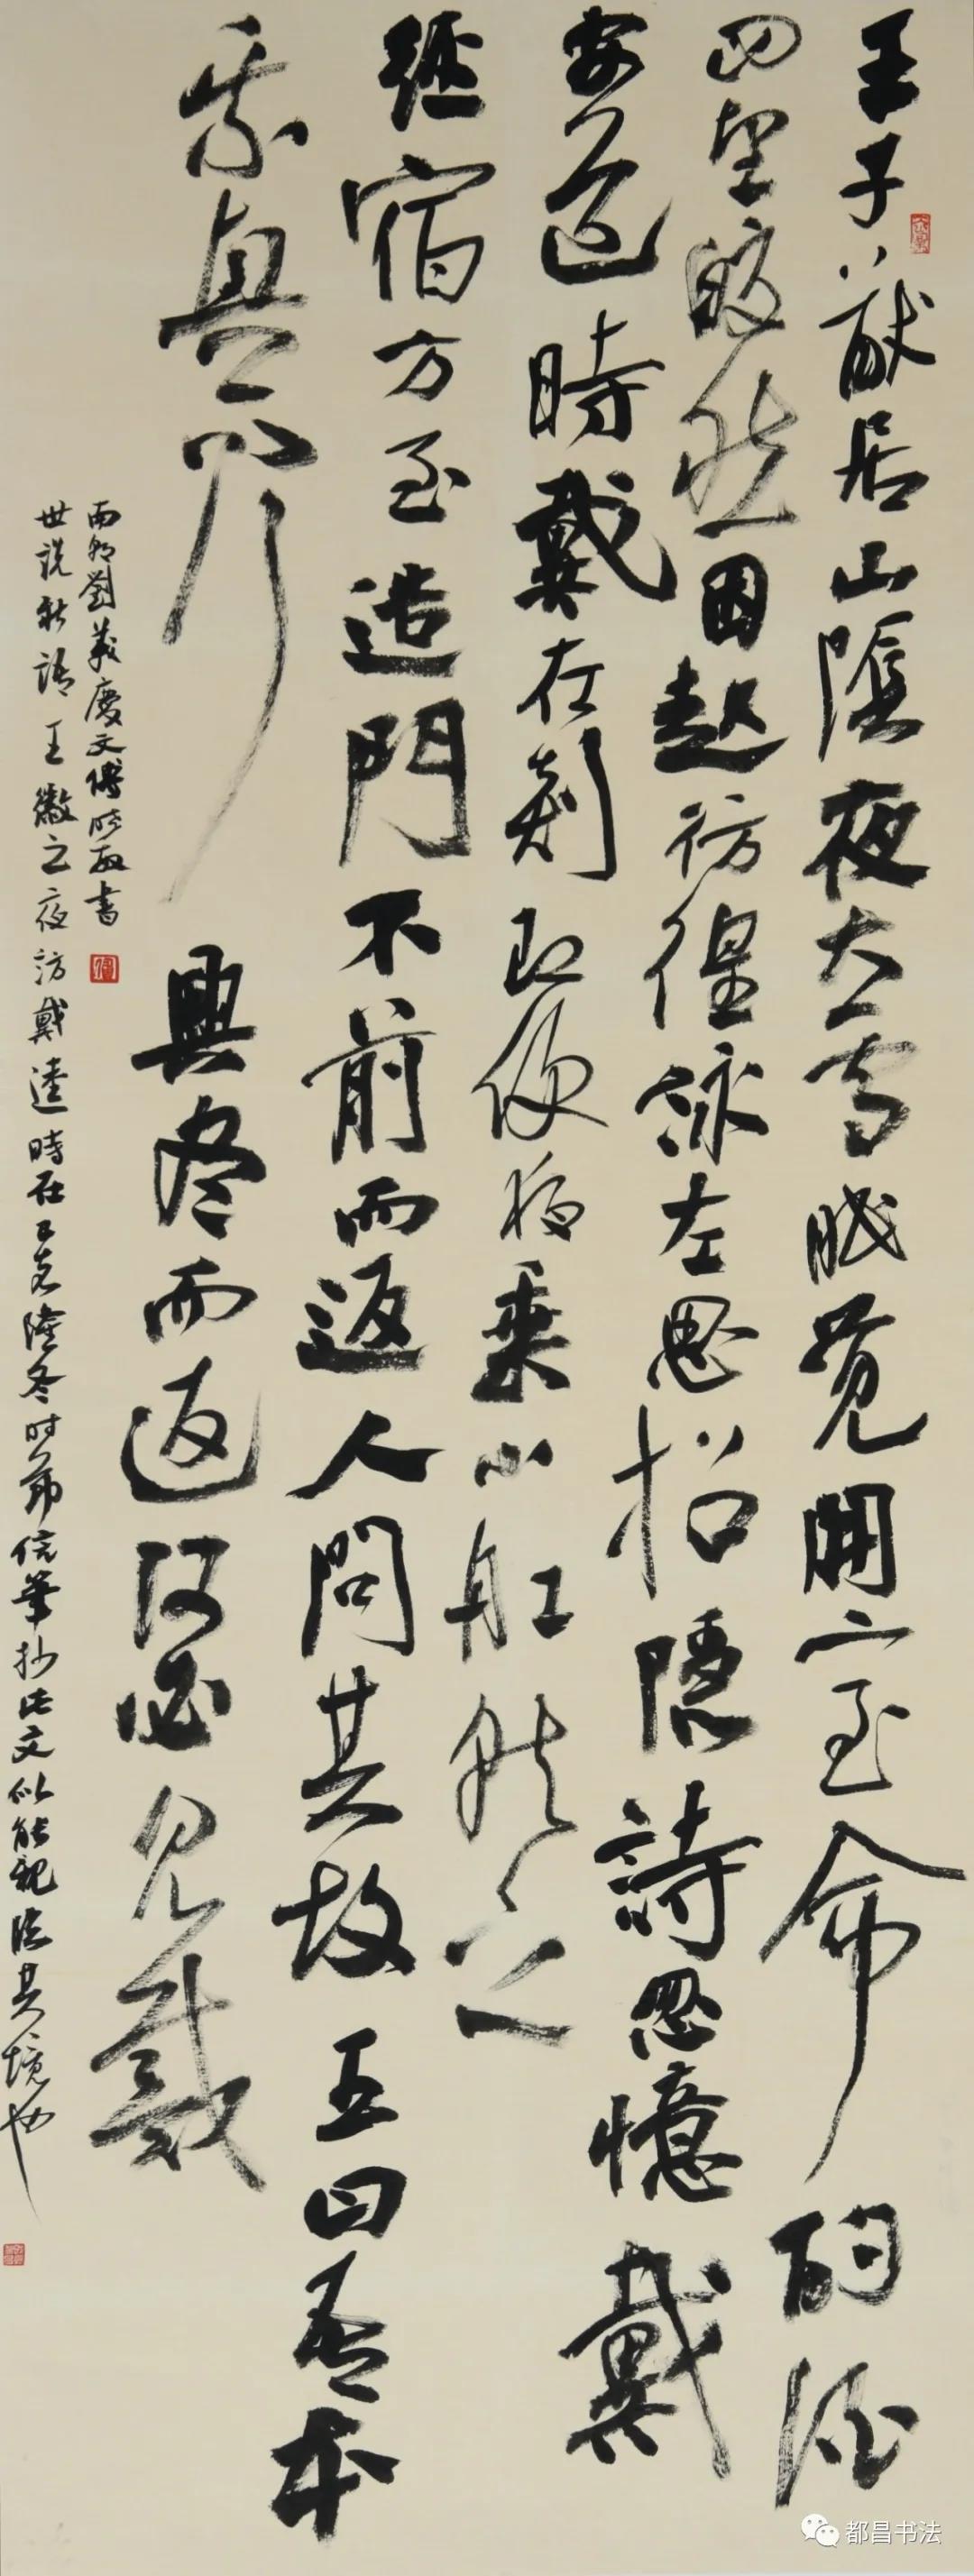 王子猷居山陰夜大雪眠覺開室命酌酒
四望皎然因起彷徨詠左思招隱詩忽憶戴
安道時戴在剡即便夜乘小船就之
經宿方至造門不前而返人問其故王曰吾本
乘興而行興盡而返何必見戴
世說新語王徽之夜訪戴逵時在癸卯隆冬時節信筆抄此文似能親臨其境也
南朝劉義慶文 書
都昌书法